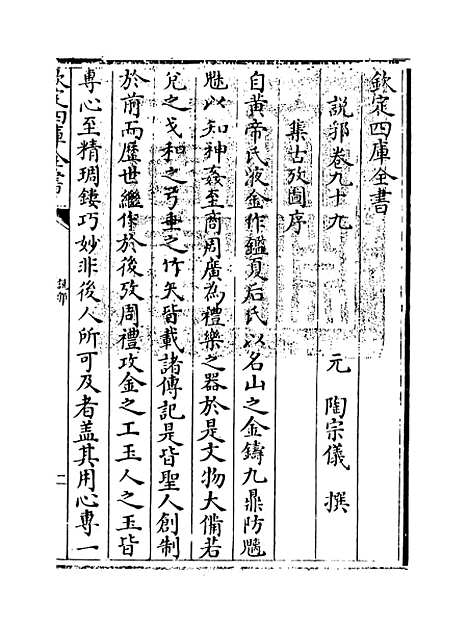 欽定四庫全書
說郛卷九十九
元 陶宗儀 撰
集古攷圖序
自黃帝氏液金作鑑夏后氏以名山之金鑄九鼎防魑
魅以知神姦至商周廣為禮樂之器於是文物大備若
兊之戈和之弓垂之竹矢皆載諸傳記是皆聖人創制
於前而歷世繼作於後攷周禮攻金之工玉人之玉皆
專心至精琱鏤巧妙非後人所可及者盖其用心專一
欽定四庫全書
說郛